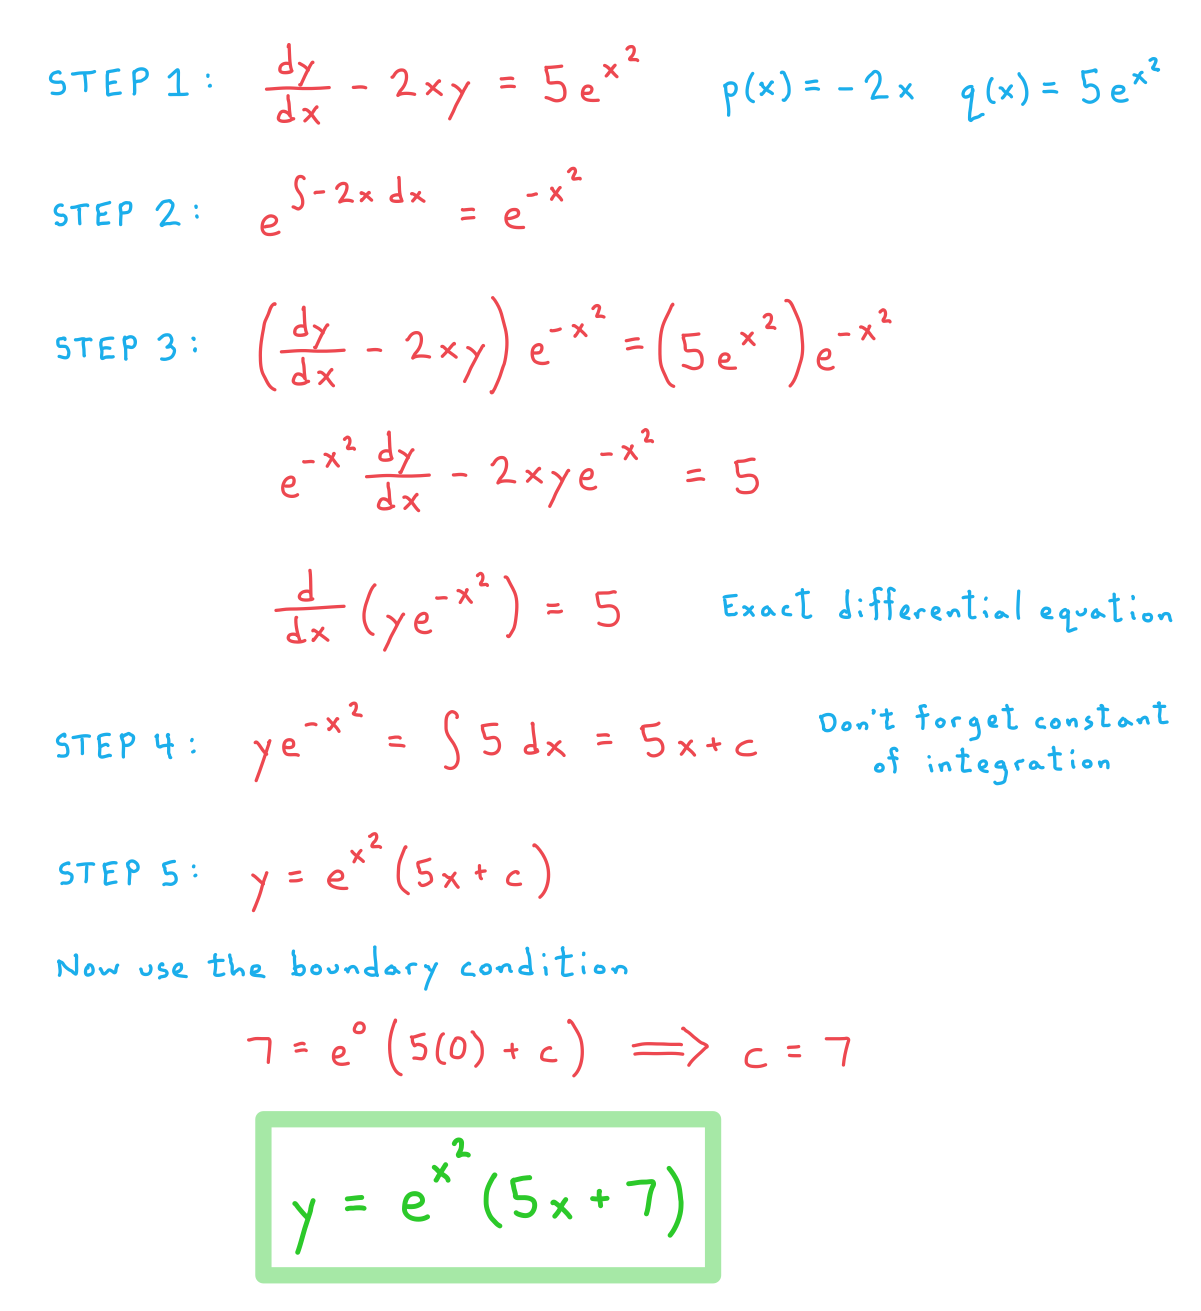 STEP 1: dy/dx - 2xy = 5e^x² p(x) = -2x q(x) = 5e^x²
STEP 2: e^∫-2x dx = e^-x²
STEP 3: (dy/dx - 2xy) e^-x² = (5e^x²) e^-x²
e^-x² dy/dx - 2xye^-x² = 5
d/dx (ye^-x²) = 5 Exact differential equation
STEP 4: ye^-x² = ∫ 5 dx = 5x + c Don't forget constant
of integration
STEP 5: y = e^x² (5x + c)
Now use the boundary condition
7 = e^0 (5(0) + c) ⟹ c = 7
y = e^x² (5x + 7)